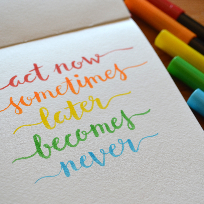 act now
sometimes
later
becomes
never